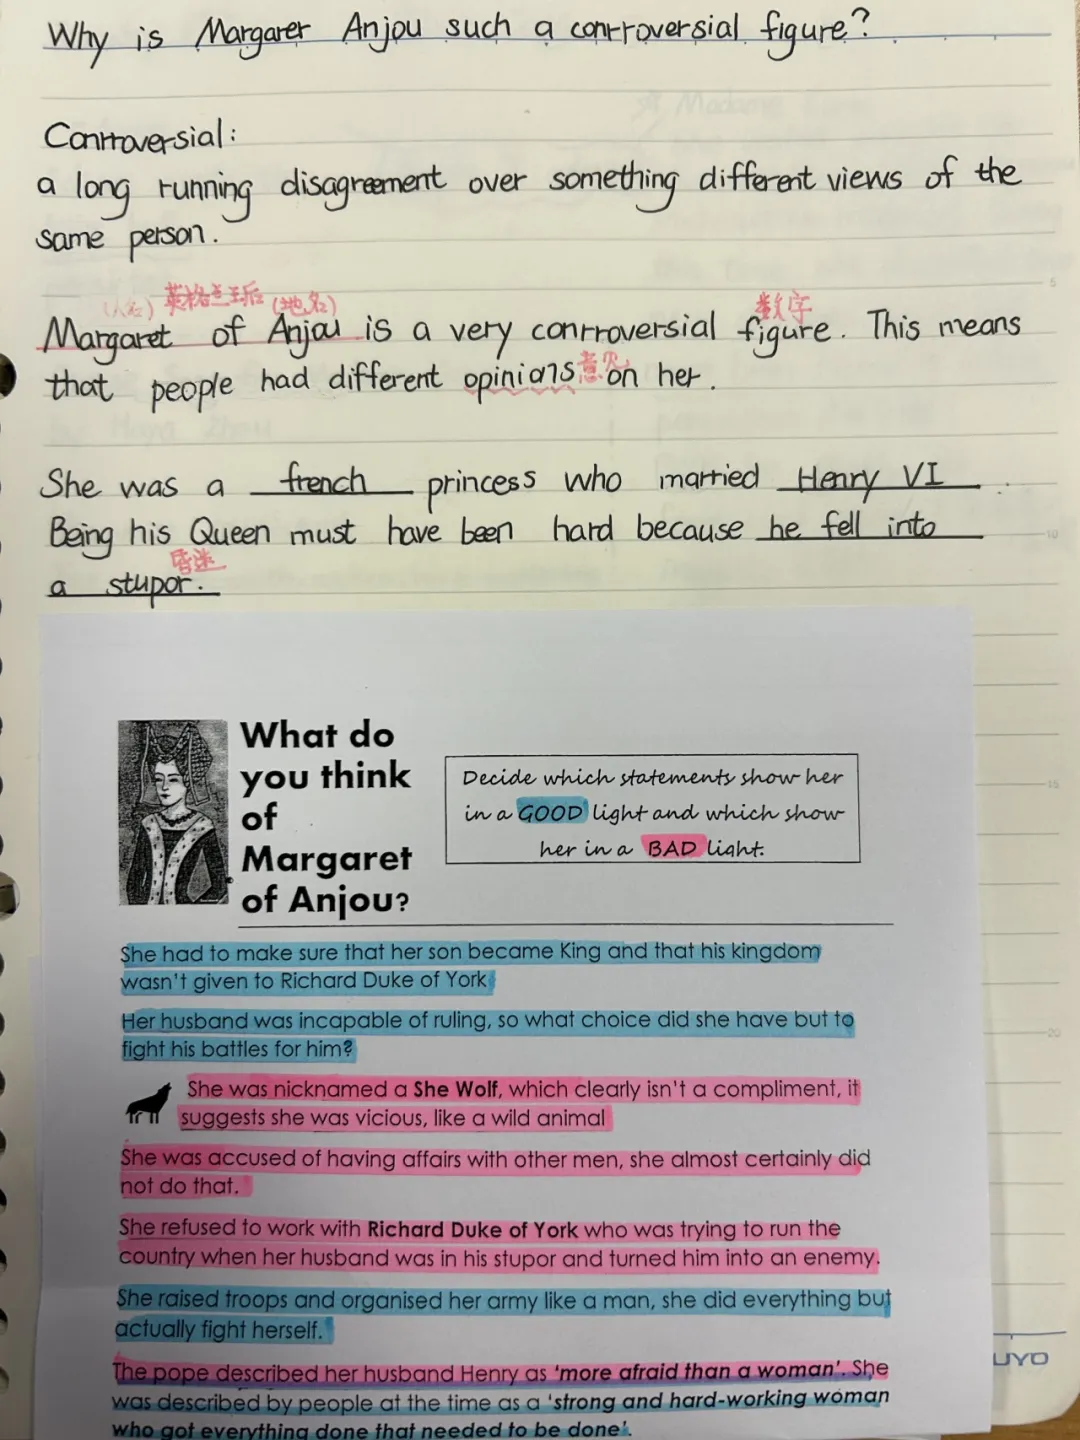 Why is Margarer Anjou such a conrroversial figure?
Conrroversial:
a long running disagreement over something different views of the
same person.
(人名) 英格兰王后 (地名) 数字
Margaret of Anjou is a very conrroversial figure. This means
that people had different opinions 意见 on her.
She was a french princess who married Henry VI
Being his Queen must have been hard because he fell into
昏迷
a stupor.
What do
you think
of
Margaret
of Anjou?
Decide which statements show her
in a GOOD light and which show
her in a BAD light.
She had to make sure that her son became King and that his kingdom
wasn't given to Richard Duke of York
Her husband was incapable of ruling, so what choice did she have but to
fight his battles for him?
She was nicknamed a She Wolf, which clearly isn't a compliment, it
suggests she was vicious, like a wild animal
She was accused of having affairs with other men, she almost certainly did
not do that.
She refused to work with Richard Duke of York who was trying to run the
country when her husband was in his stupor and turned him into an enemy.
She raised troops and organised her army like a man, she did everything but
actually fight herself.
The pope described her husband Henry as 'more afraid than a woman'. She
was described by people at the time as a 'strong and hard-working woman
who got everything done that needed to be done'.
5
10
15
20
UYO